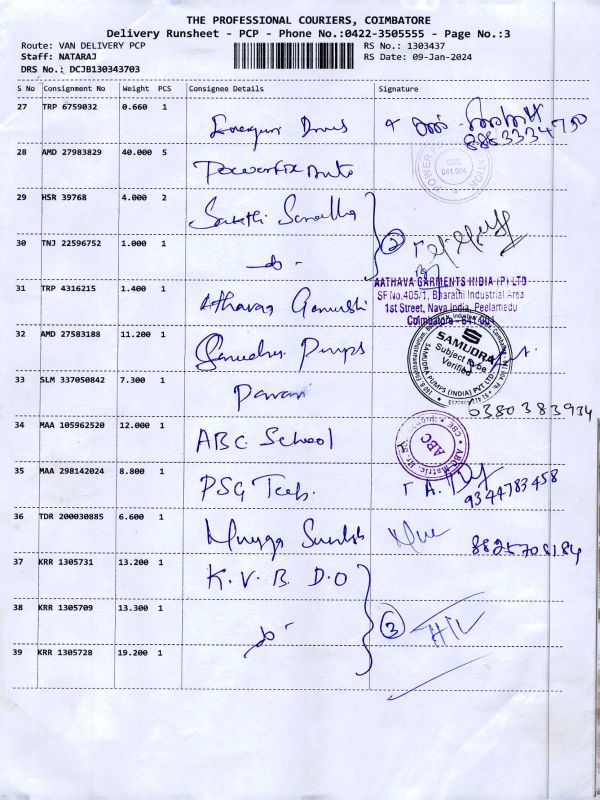 THE PROFESSIONAL COURIERS, COIMBATORE
Delivery Runsheet - PCP - Phone No.:0422-3505555 - Page No.:3
Route: VAN DELIVERY PCP
RS No.: 1303437
Staff: NATARAJ
RS Date: 09-Jan-2024
DRS No.: DCJB130343703
S No Consignment No Weight PCS Consignee Details Signature
27 TRP 6759032 0.660 1
28 AMD 27983829 40.000 5 Powerfix Auto
29 HSR 39768 4.000 2 Sakthi
30 TNJ 22596752 1.000 1 do -
2
AATHAVA GARMENTS INDIA (P) LTD
SF No.405/1, Bharathi Industrial Area
1st Street, Nava India, Peelamedu
Coimbatore - 641 004
31 TRP 4316215 1.400 1 Athava
32 AMD 27583188 11.200 1 Samudra Pumps
SAMUDRA
Subject to be
Verified
SAMUDRA PUMPS (INDIA) PVT LTD
33 SLM 337050842 7.300 1 Pavan
34 MAA 105962520 12.000 1 ABC School
ABC
35 MAA 298142024 8.800 1 PSG Tech.
9344783458
36 TDR 200030885 6.600 1
37 KRR 1305731 13.200 1 K.V.B. D.O
38 KRR 1305709 13.300 1 do -
3
39 KRR 1305728 19.200 1